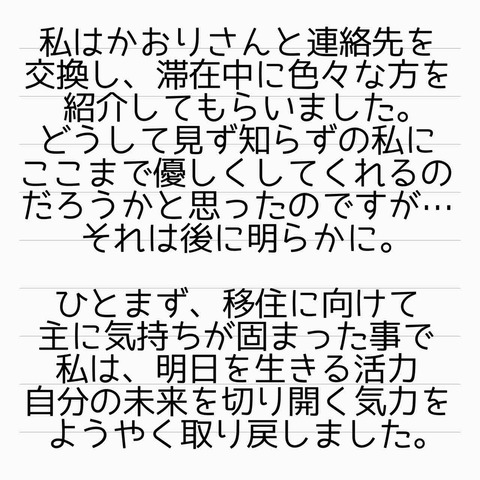 私はかおりさんと連絡先を
交換し、滞在中に色々な方を
紹介してもらいました。
どうして見ず知らずの私に
ここまで優しくしてくれるの
だろうかと思ったのですが…
それは後に明らかに。
ひとまず、移住に向けて
主に気持ちが固まった事で
私は、明日を生きる活力
自分の未来を切り開く気力を
ようやく取り戻しました。